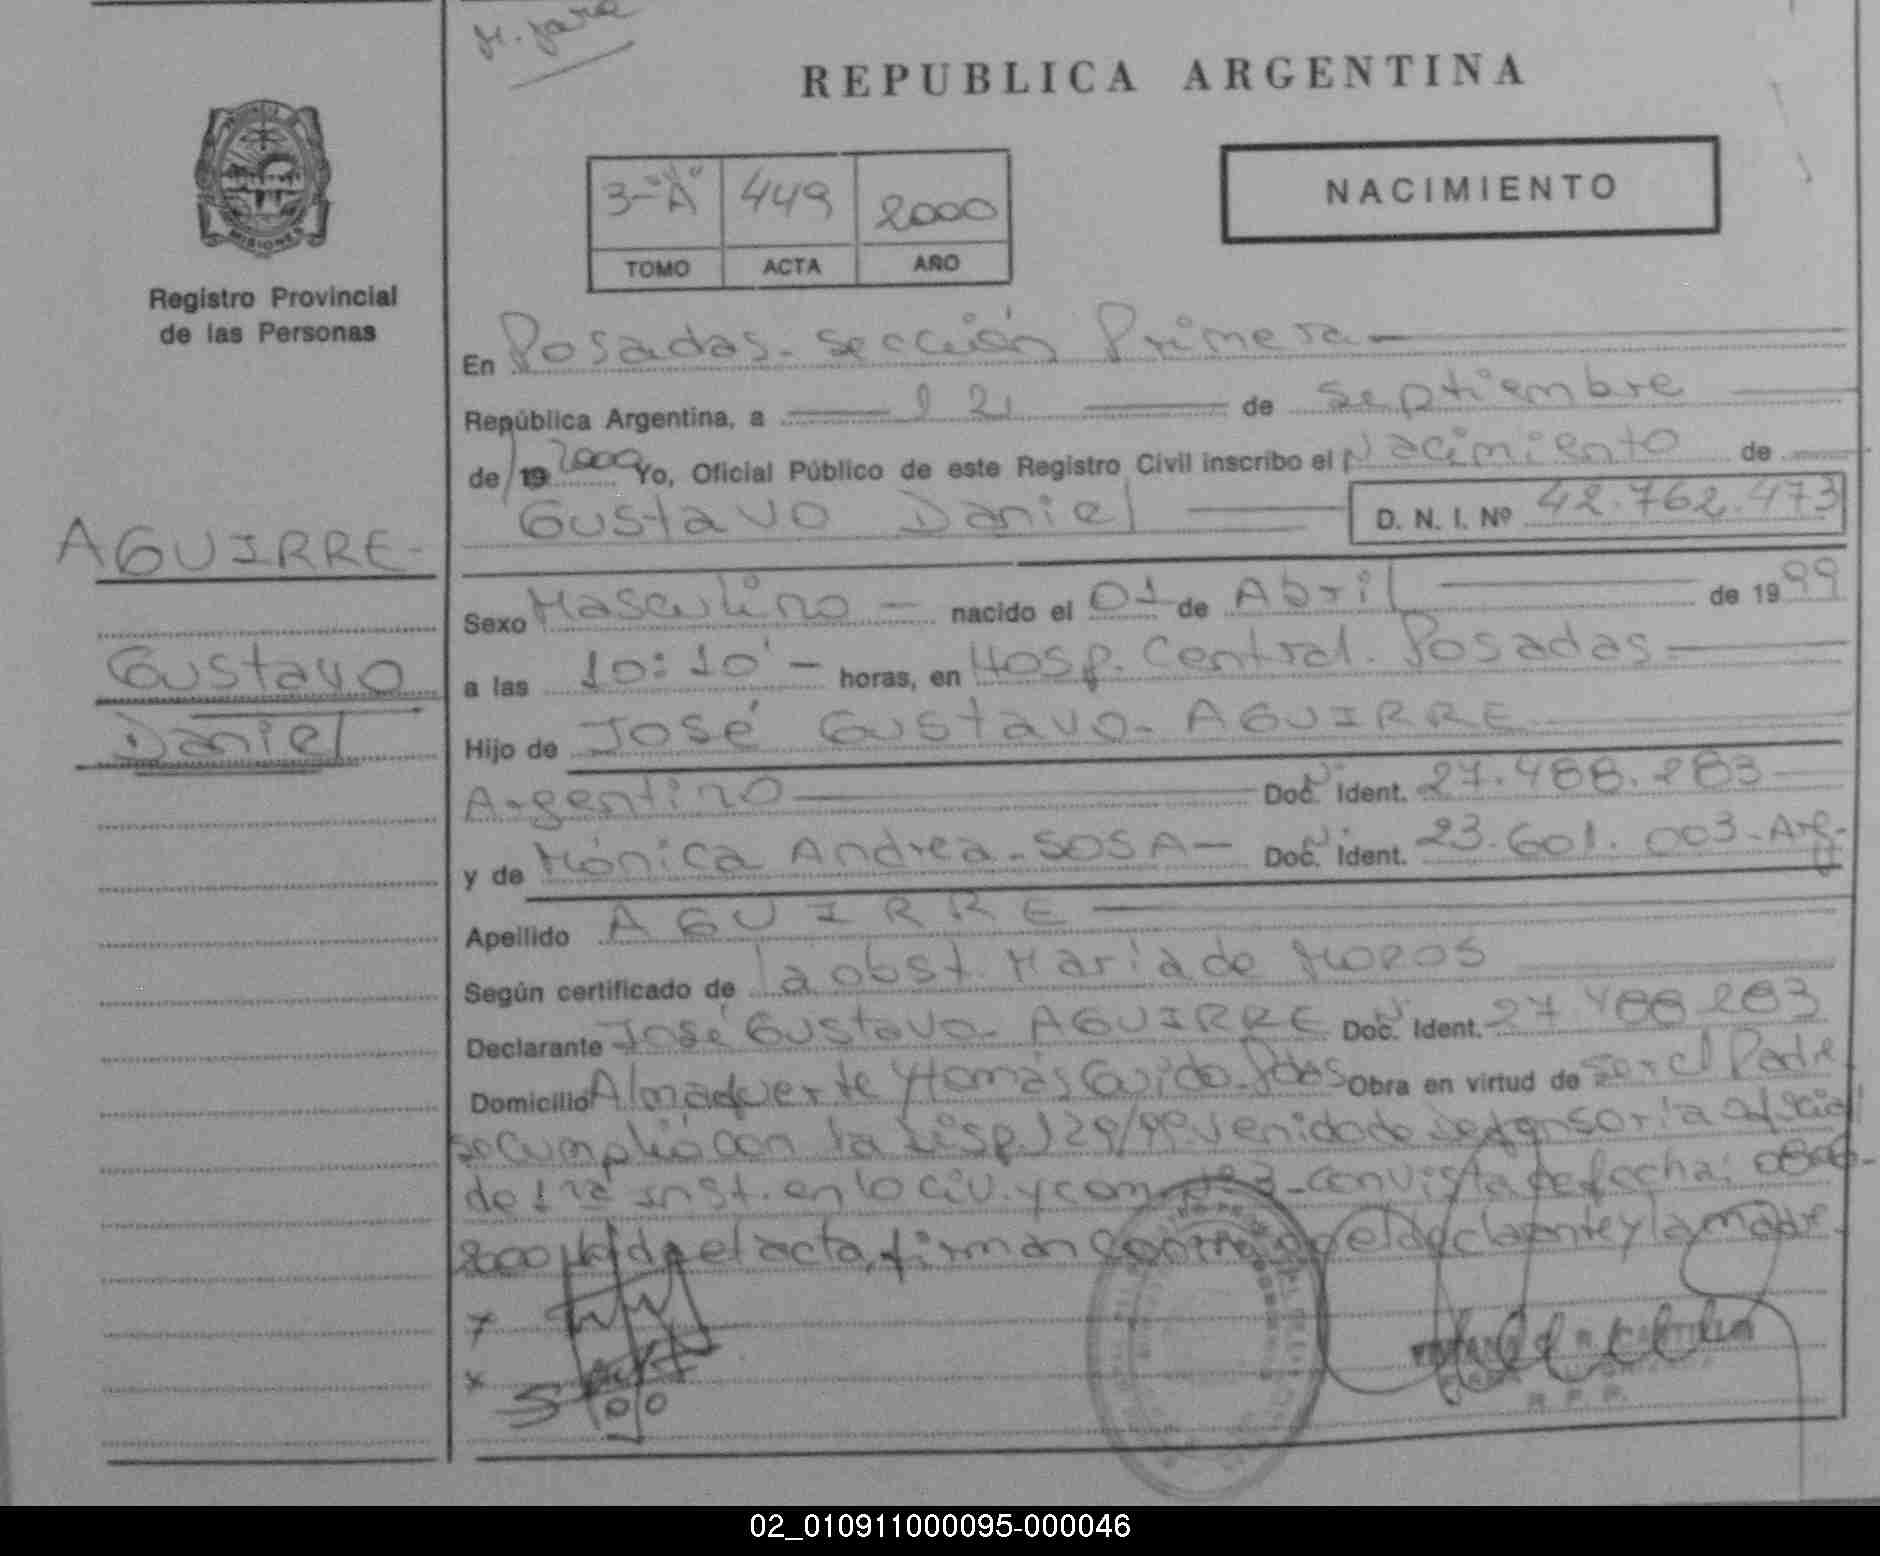 REPUBLICA ARGENTINA
NACIMIENTO
3-"A" 449 2000
TOMO ACTA AÑO
MISIONES
Registro Provincial
de las Personas
En Posadas. Sección Primera
República Argentina, a 21 de Septiembre
de 19 2000 Yo, Oficial Público de este Registro Civil inscribo el Nacimiento de
Gustavo Daniel D. N. I. Nº 42.762.473
AGUIRRE
Gustavo
Daniel
Sexo Masculino nacido el 01 de Abril de 1999
a las 10:10' horas, en Hosp. Central. Posadas
Hijo de José Gustavo. AGUIRRE
Argentino Doc. Ident. 27.488.283
y de Mónica Andrea. SOSA Doc. Ident. 23.601.003-Arg.
Apellido AGUIRRE
Según certificado de la obst. María de
Declarante José Gustavo. AGUIRRE Doc. Ident. 27.488.283
Domicilio Almafuerte y Tomás Guido. Pdas Obra en virtud de ser el Padre
se cumplió con la Disp. 129/99 venido de Defensoría Oficial
de 1ra inst. en lo Civ. y Com. nº3 con vista de fecha:
2000 el acta, firman el declarante y la madre.
02_010911000095-000046